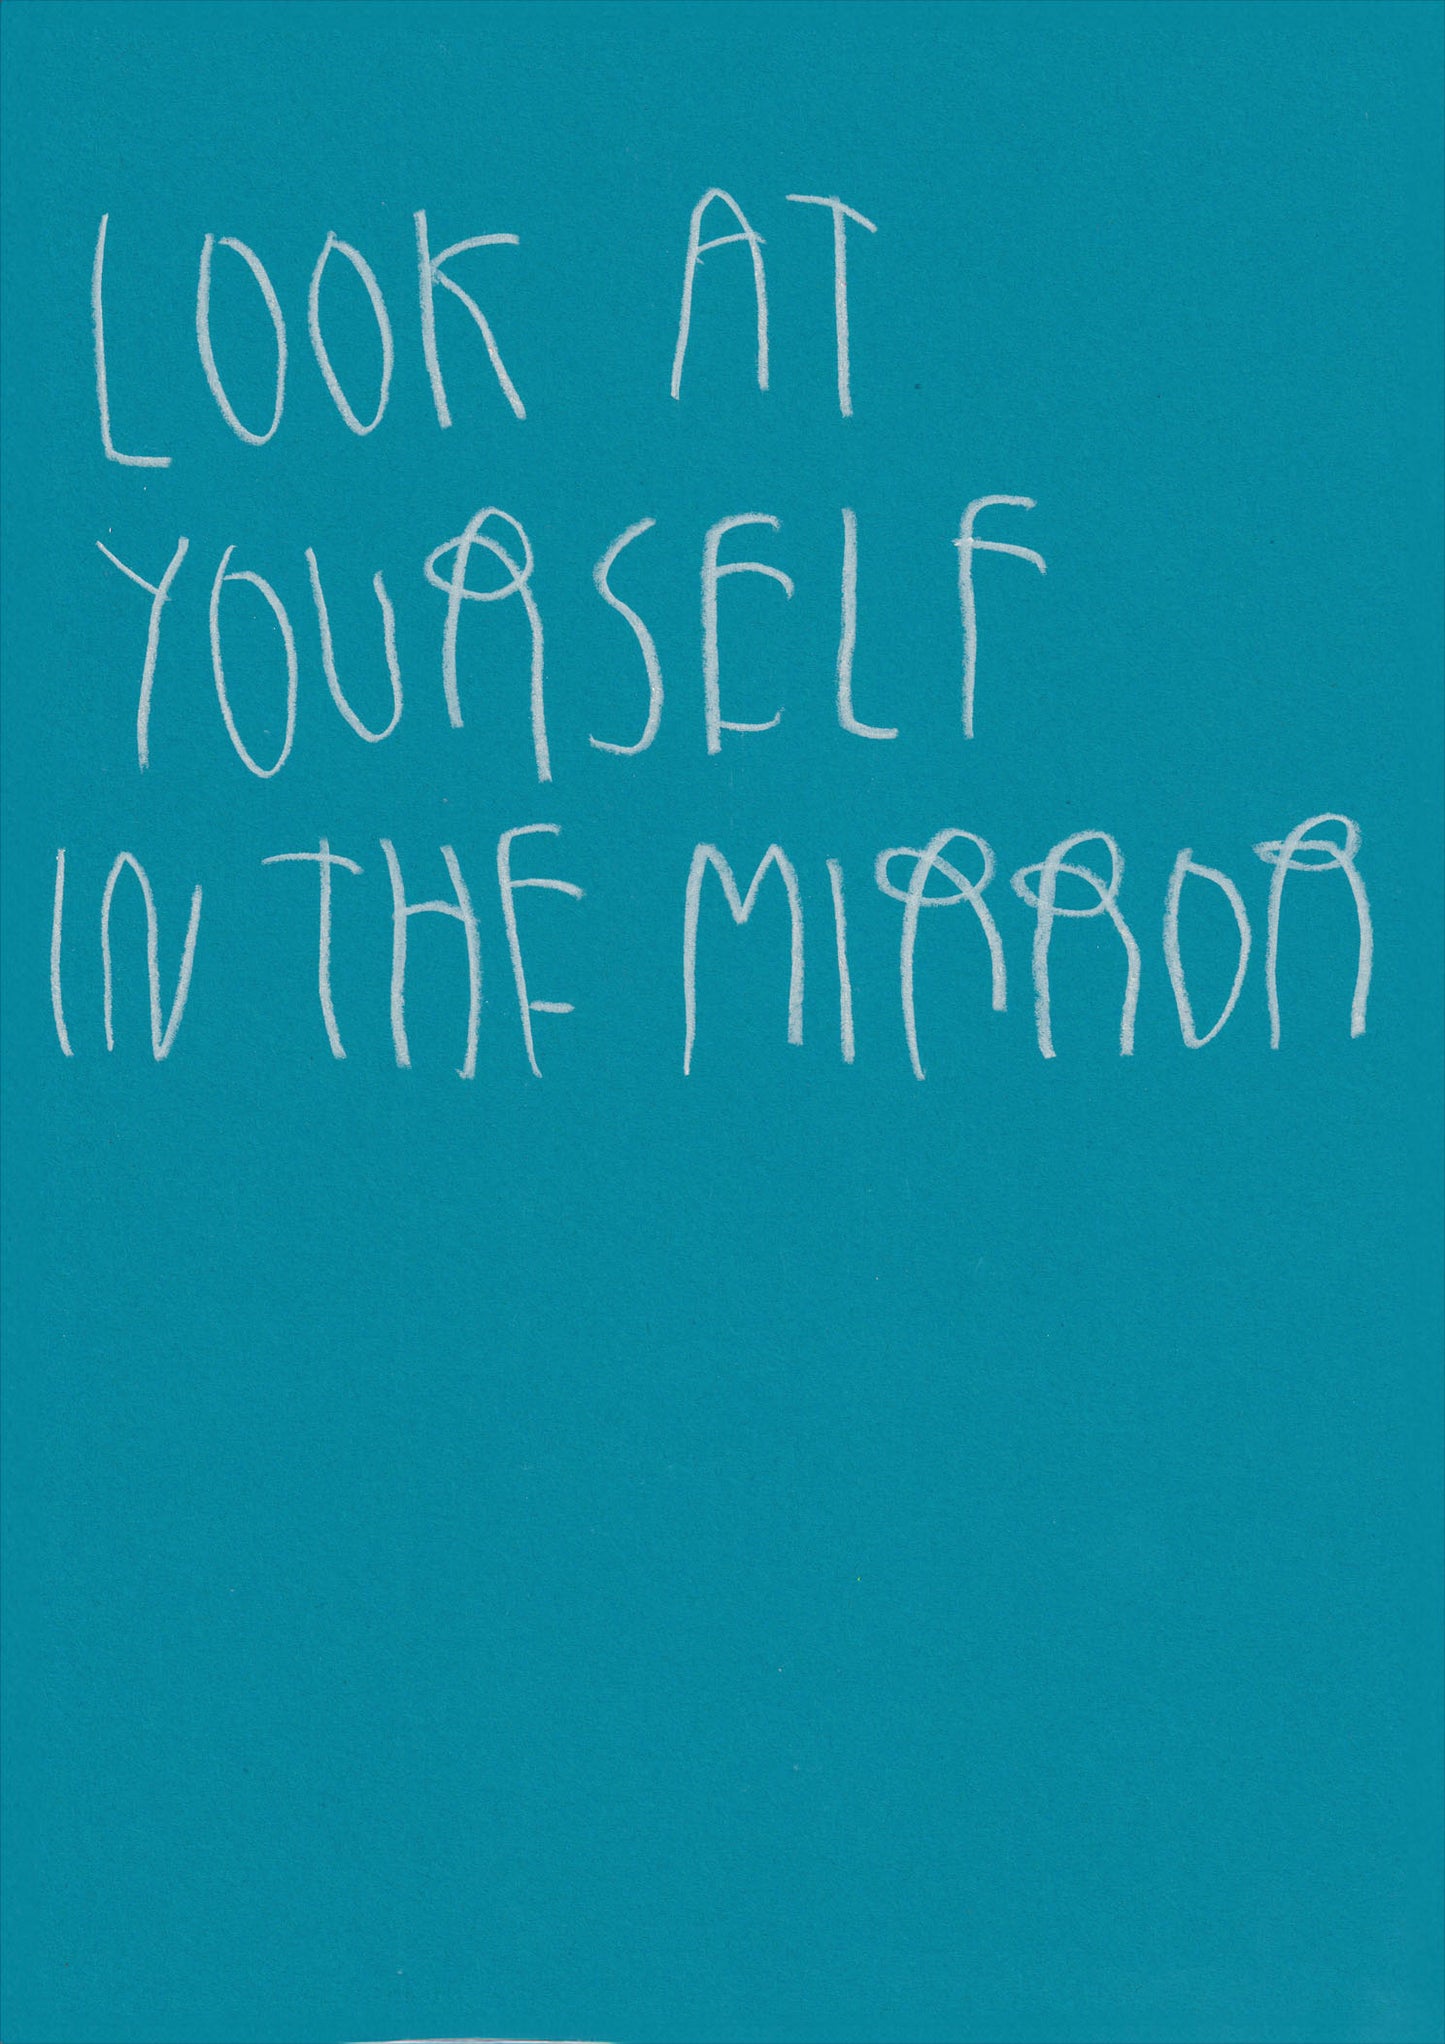 LOOK AT
YOURSELF
IN THE MIRROR